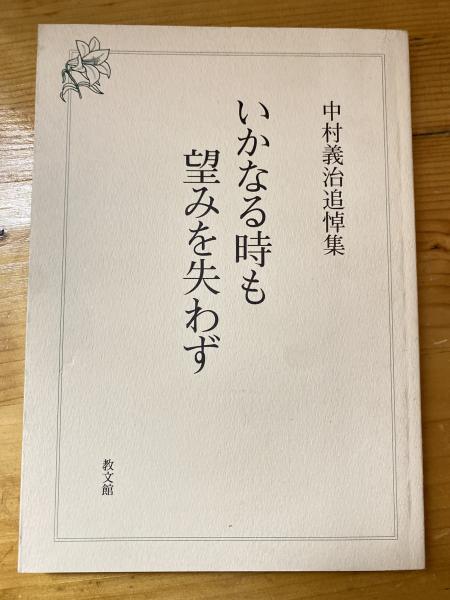 中村義治追悼集
いかなる時も
望みを失わず
教文館